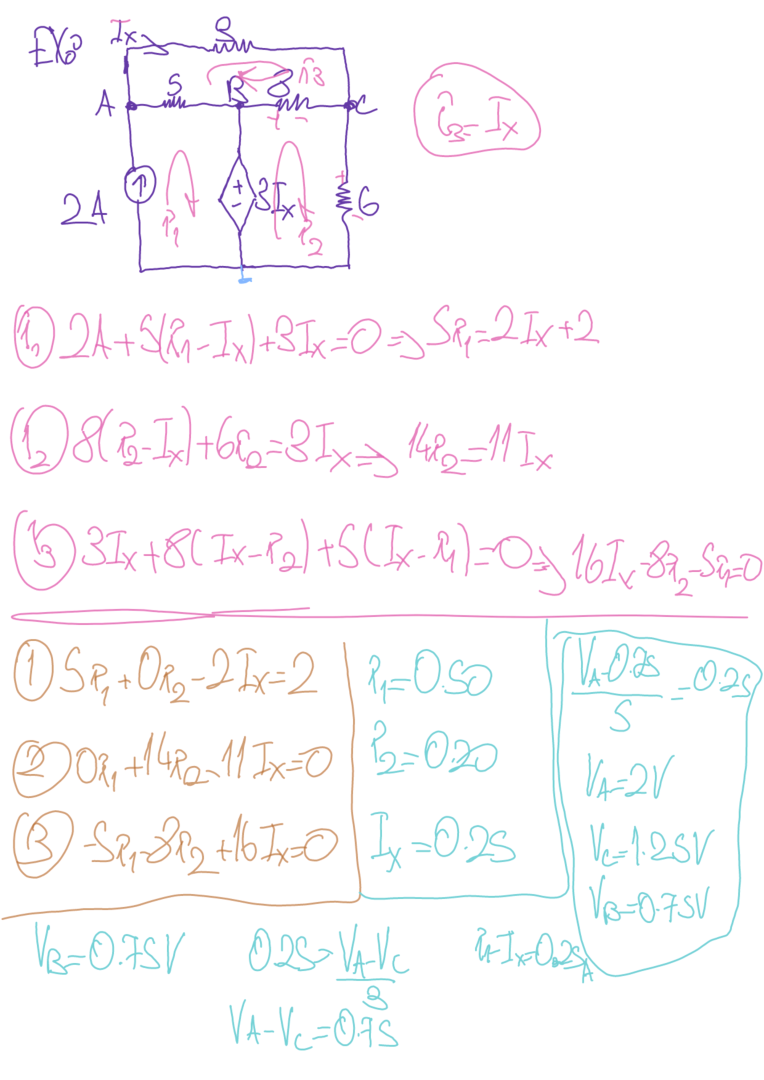 EX:
Ix
3
i3
A
5
B
8
C
i3=Ix
2A
i1
+
-
3Ix
i2
+
-
6
i1 2A+5(i1-Ix)+3Ix=0 => 5i1=2Ix+2
i2 8(i2-Ix)+6i2=3Ix => 14i2=11Ix
i3 3Ix+8(Ix-i2)+5(Ix-i1)=0 => 16Ix-8i2-5i1=0
1 5i1+0i2-2Ix=2
2 0i1+14i2-11Ix=0
3 -5i1-8i2+16Ix=0
i1=0.50
i2=0.20
Ix=0.25
VA=2V
VC=1.25V
VB=0.75V
VB=0.75V
0.25=VA-VC/3
VA-VC=0.75
i1-Ix=0.25A